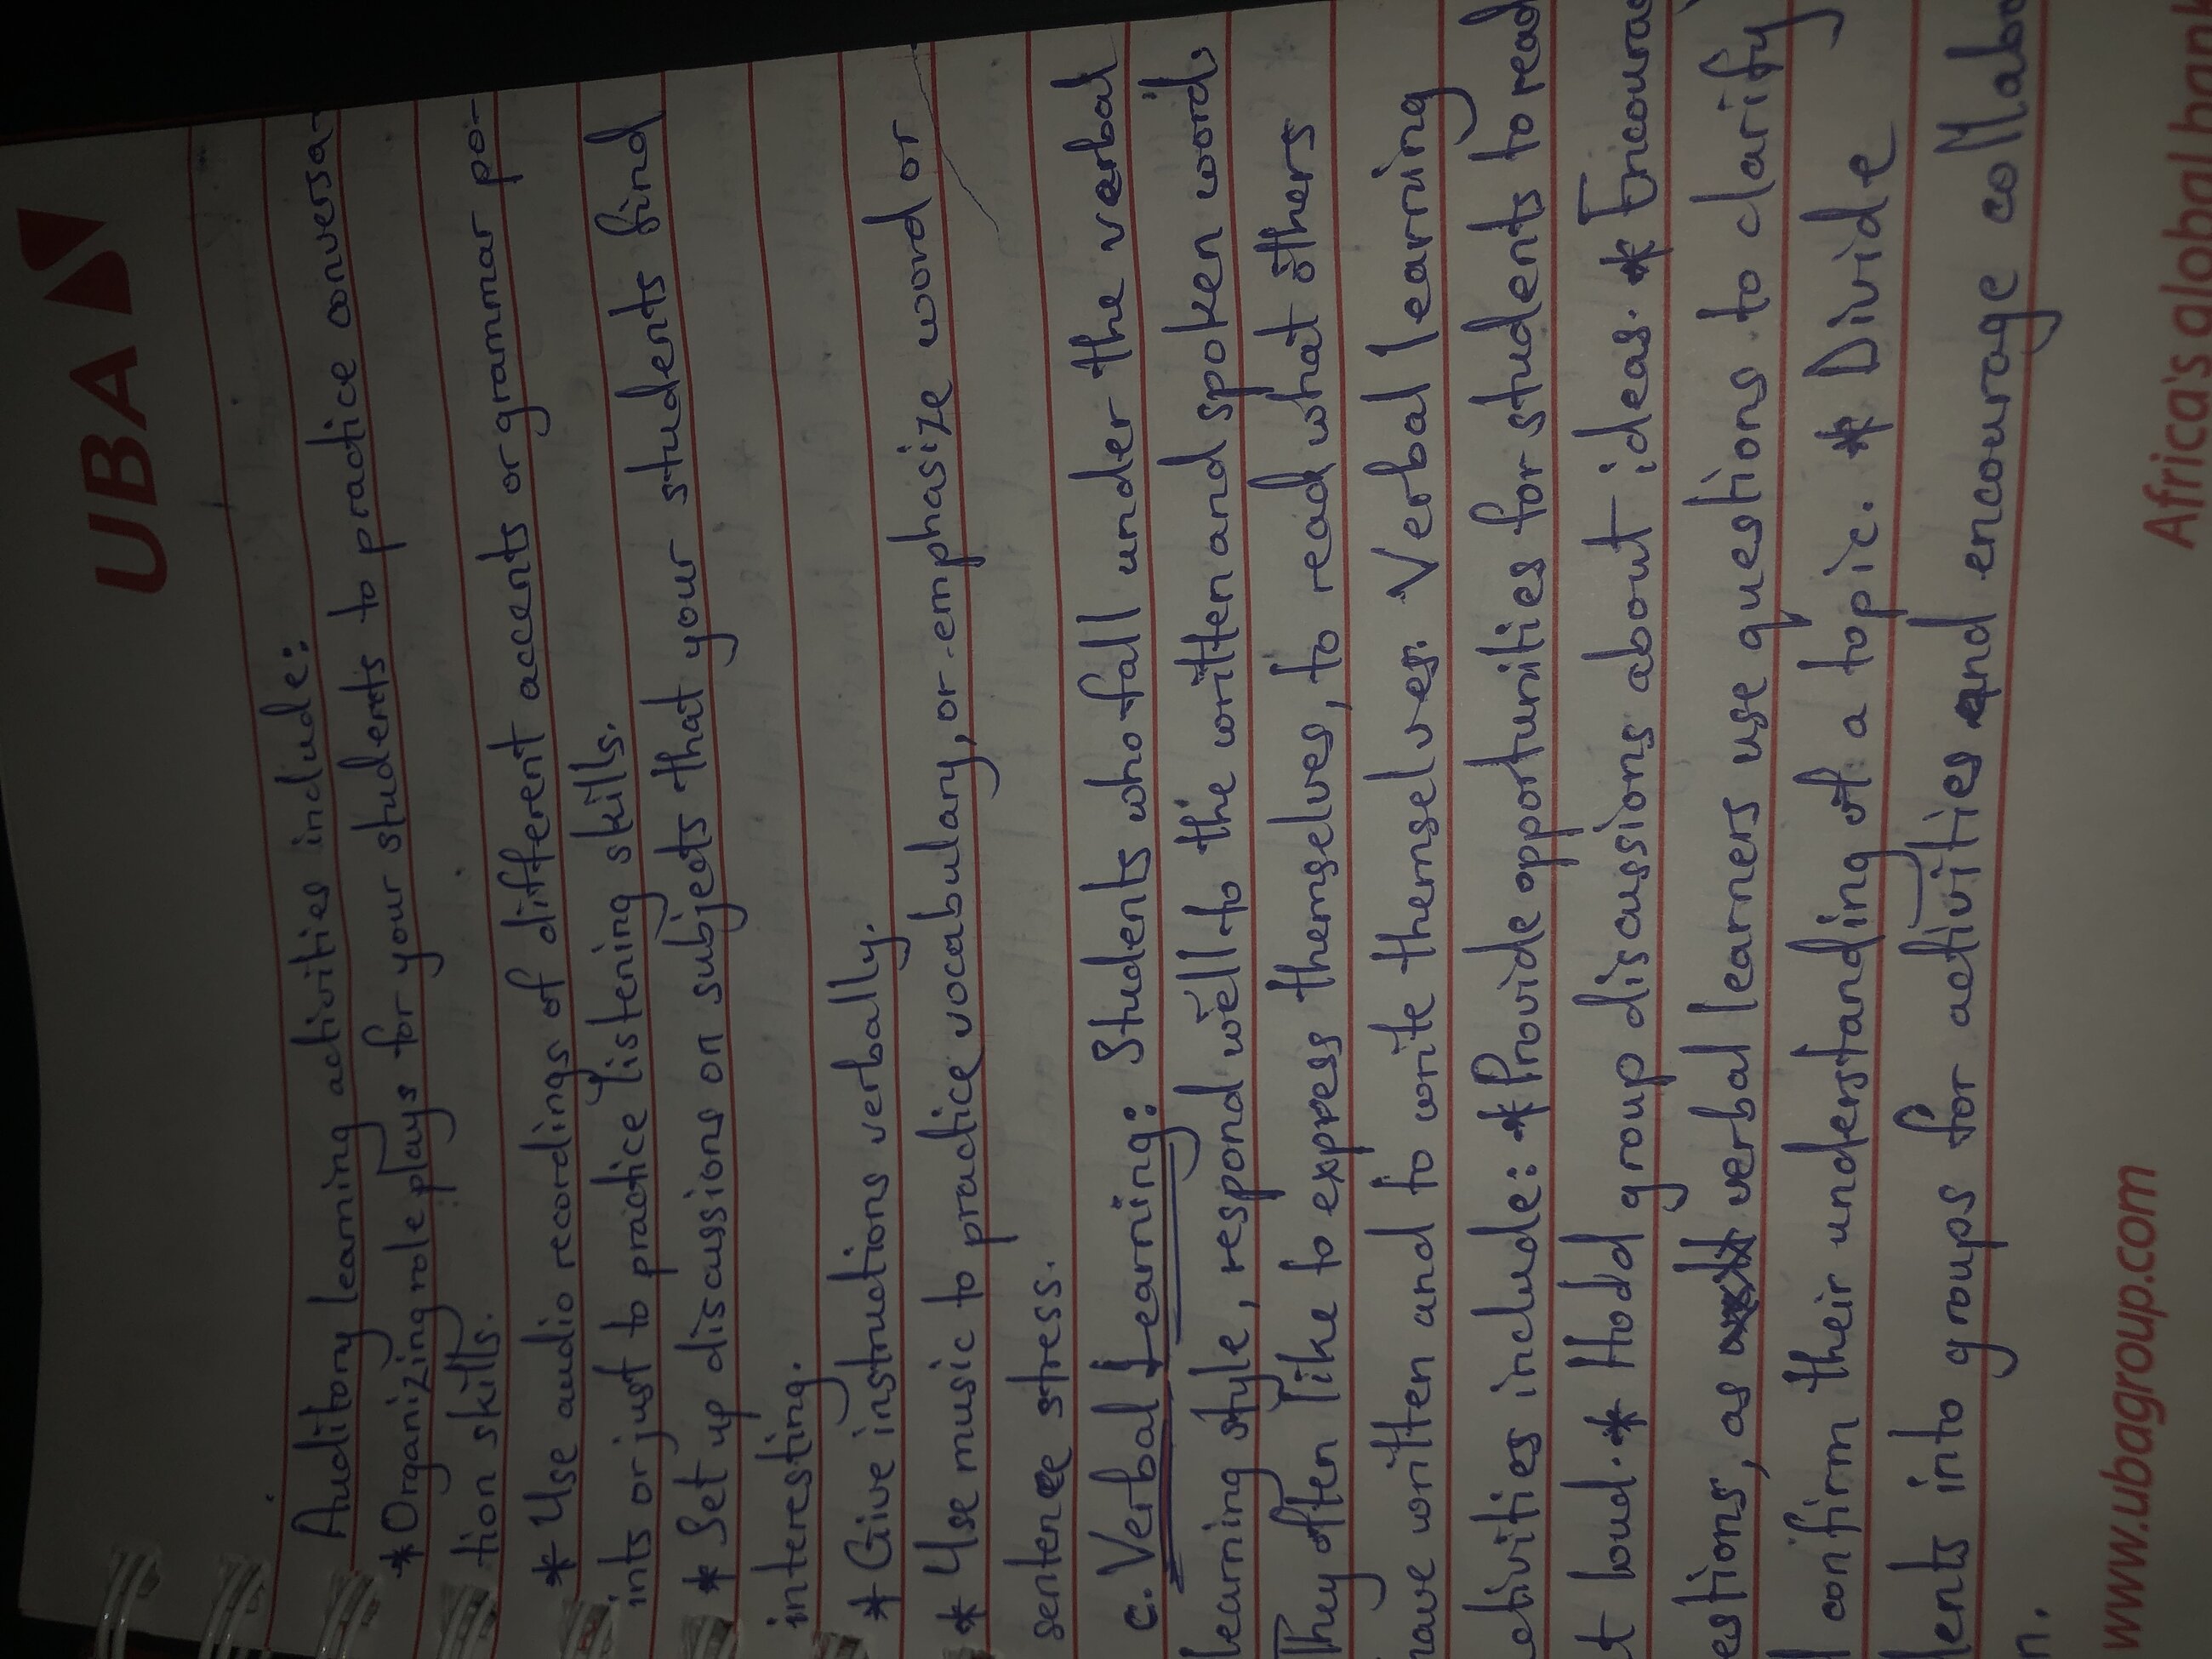 UBA
Auditory learning activities include:
* Organizing role plays for your students to practice conversa-
tion skills.
* Use audio recordings of different accents or grammar po-
ints or just to practice listening skills.
* Set up discussions on subjects that your students find
interesting.
* Give instructions verbally.
* Use music to practice vocabulary, or emphasize word or
sentence stress.
c. Verbal Learning: Students who fall under the verbal
learning style, respond well to the written and spoken word,
They often like to express themselves, to read what others
have written and to write themselves. Verbal learning
ctivities include: * Provide opportunities for students to read
t loud. * Hold group discussions about ideas. * Encourag
estions, as verbal learners use questions to clarify
d confirm their understanding of a topic. * Divide
dents into groups for activities and encourage collabo
n.
www.ubagroup.com Africa's global bank